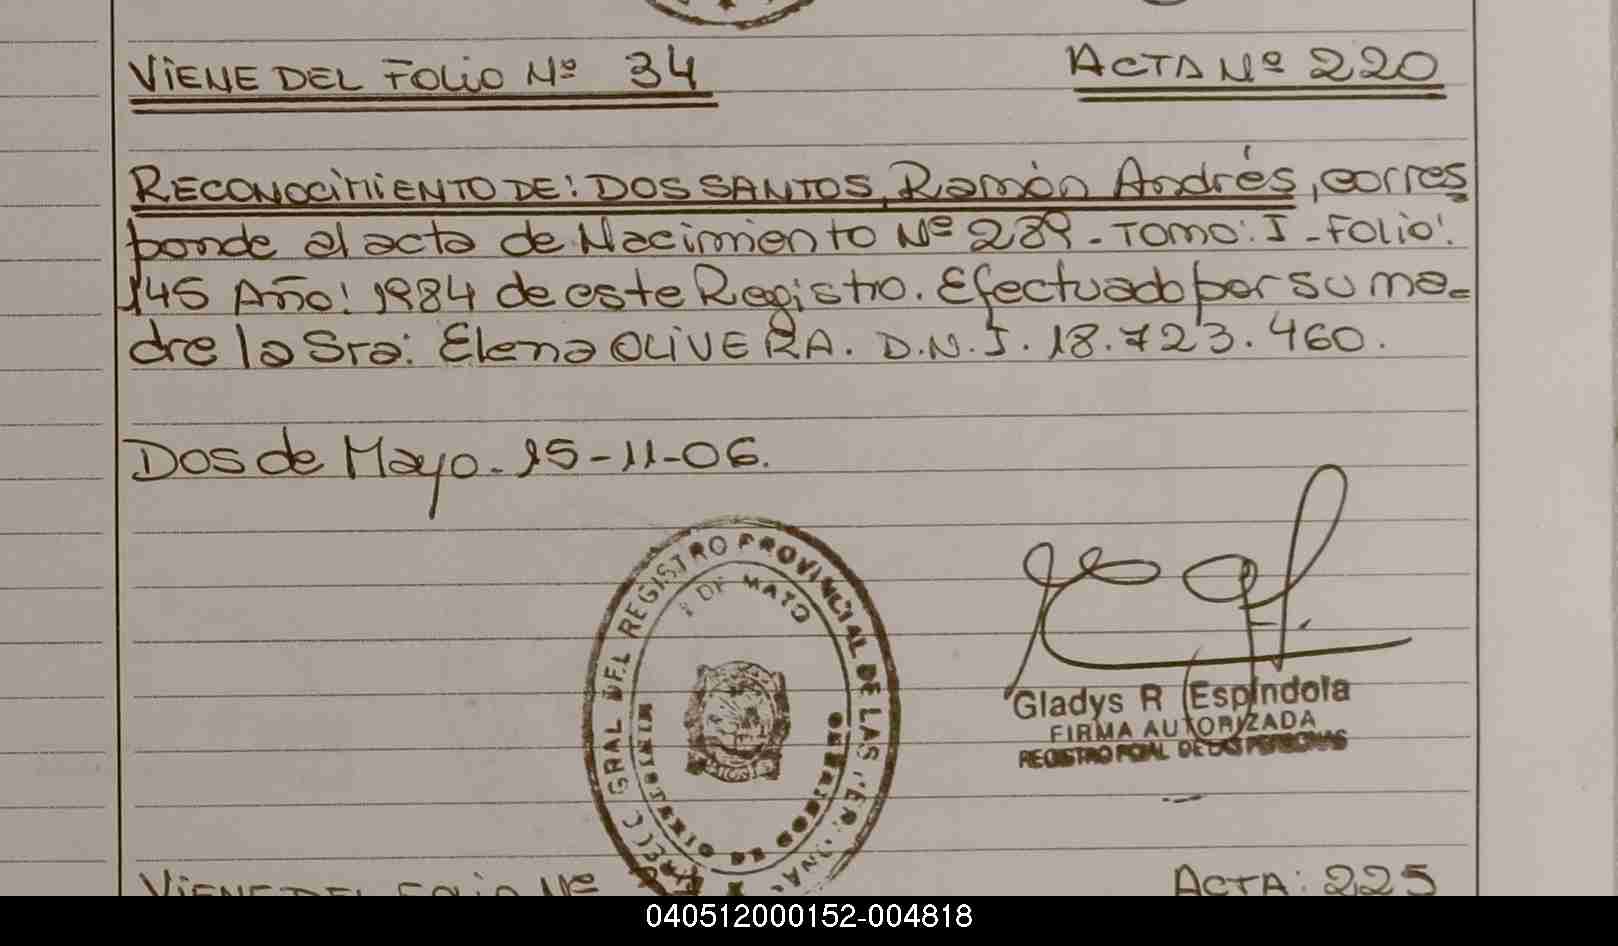 VIENE DEL FOLIO Nº 34
ACTA Nº 220
RECONOCIMIENTO DE: DOS SANTOS, Ramón Andrés, corres
ponde al acta de Nacimiento Nº 289 - TOMO: I - FOLIO:
145 AÑO: 1984 de este Registro. Efectuado por su ma-
dre la Sra: Elena OLIVERA. D.N.I. 18.723.460.
Dos de Mayo - 15-11-06.
GRAL DEL REGISTRO PROVINCIAL DE LAS
DE MAYO
MINISTERIO DE GOBIERNO
Gladys R Espíndola
FIRMA AUTORIZADA
REGISTRO PCIAL DE LAS PERSONAS
VIENE DEL FOLIO Nº
ACTA: 225
040512000152-004818